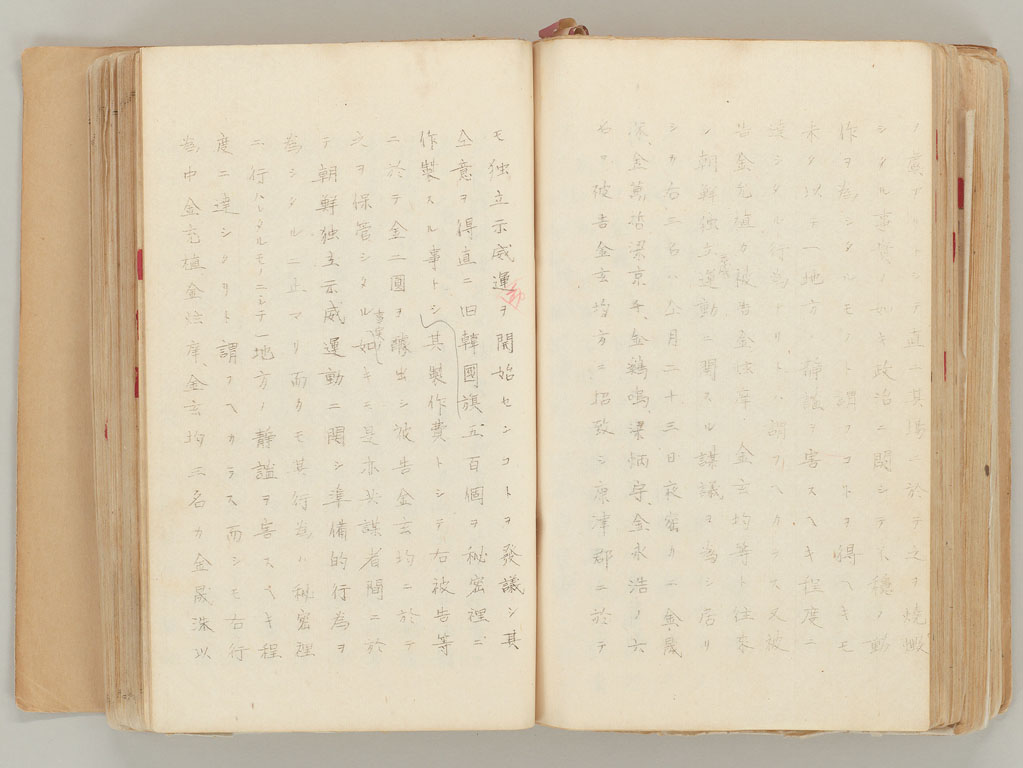 ノ虞ナリトシテ直ニ其場ニ於テ之ヲ焼燬
シタル事実ノ如キ政治ニ関シテ不穏ノ動
作ヲ為シタルモノト謂フコトヲ得ヘキモ
未タ以テ一地方ノ静謐ヲ害スヘキ程度ニ
達シタル行為ナリトハ謂フヘカラス又被
告金允植カ被告金炫庠、金玄均等ト往来
シ朝鮮独立運動ニ関スル謀議ヲ為シ居リ
シカ右三名ハ仝月二十三日夜密カニ金晟
洙、金萬 梁京千、金鶏鳴、梁炳宇、金永浩ノ六
名ヲ被告金玄均方ニ招致シ康津郡ニ於テ
モ独立示威運ヲ開始センコトヲ發議シ其
仝意ヲ得直ニ旧韓國旗五百個ヲ秘密裡ニ
作製スル事トシ其製作費トシテ右被告等
ニ於テ金二圓ヲ醵出シ被告金玄均ニ於テ
之ヲ保管シタル如キモ是亦共謀者間ニ於
テ朝鮮独立示威運動ニ関シ準備的行為ヲ
為シタルニ止マリ而カモ其行為ハ秘密裡
ニ行ハレタルモノニシテ一地方ノ静謐ヲ害スヘキ程
度ニ達シタリト謂フヘカラス而シモ右行
為中金允植金炫庠、金玄均三名カ金晟洙以